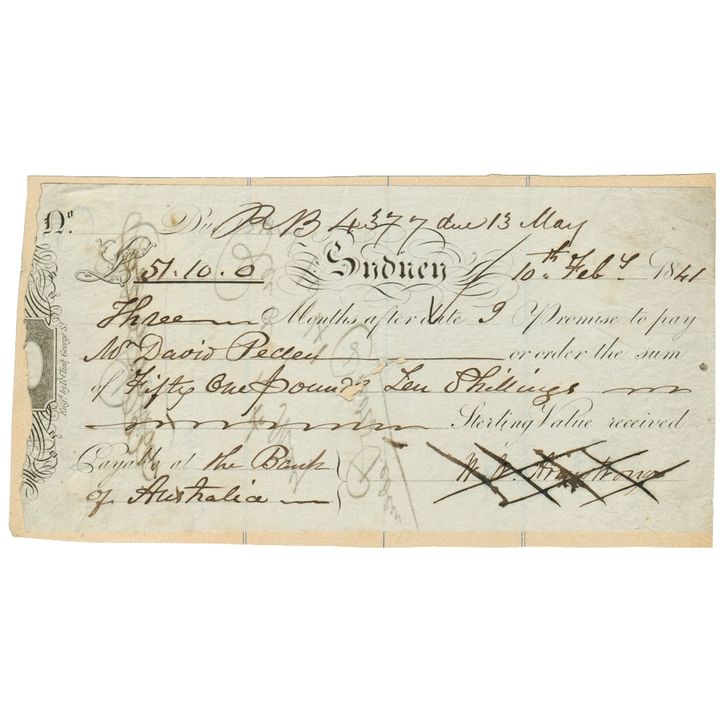 No. Du P B 4377 due 13 May
£ 51.10.0 Sydney 10th Feby 1841
Three Months after date I Promise to pay
Mr David Peden or order the sum
of Fifty One pounds Ten Shillings
Sterling Value received
Payable at the Bank
of Australia
Engd. by W. Clint George St.